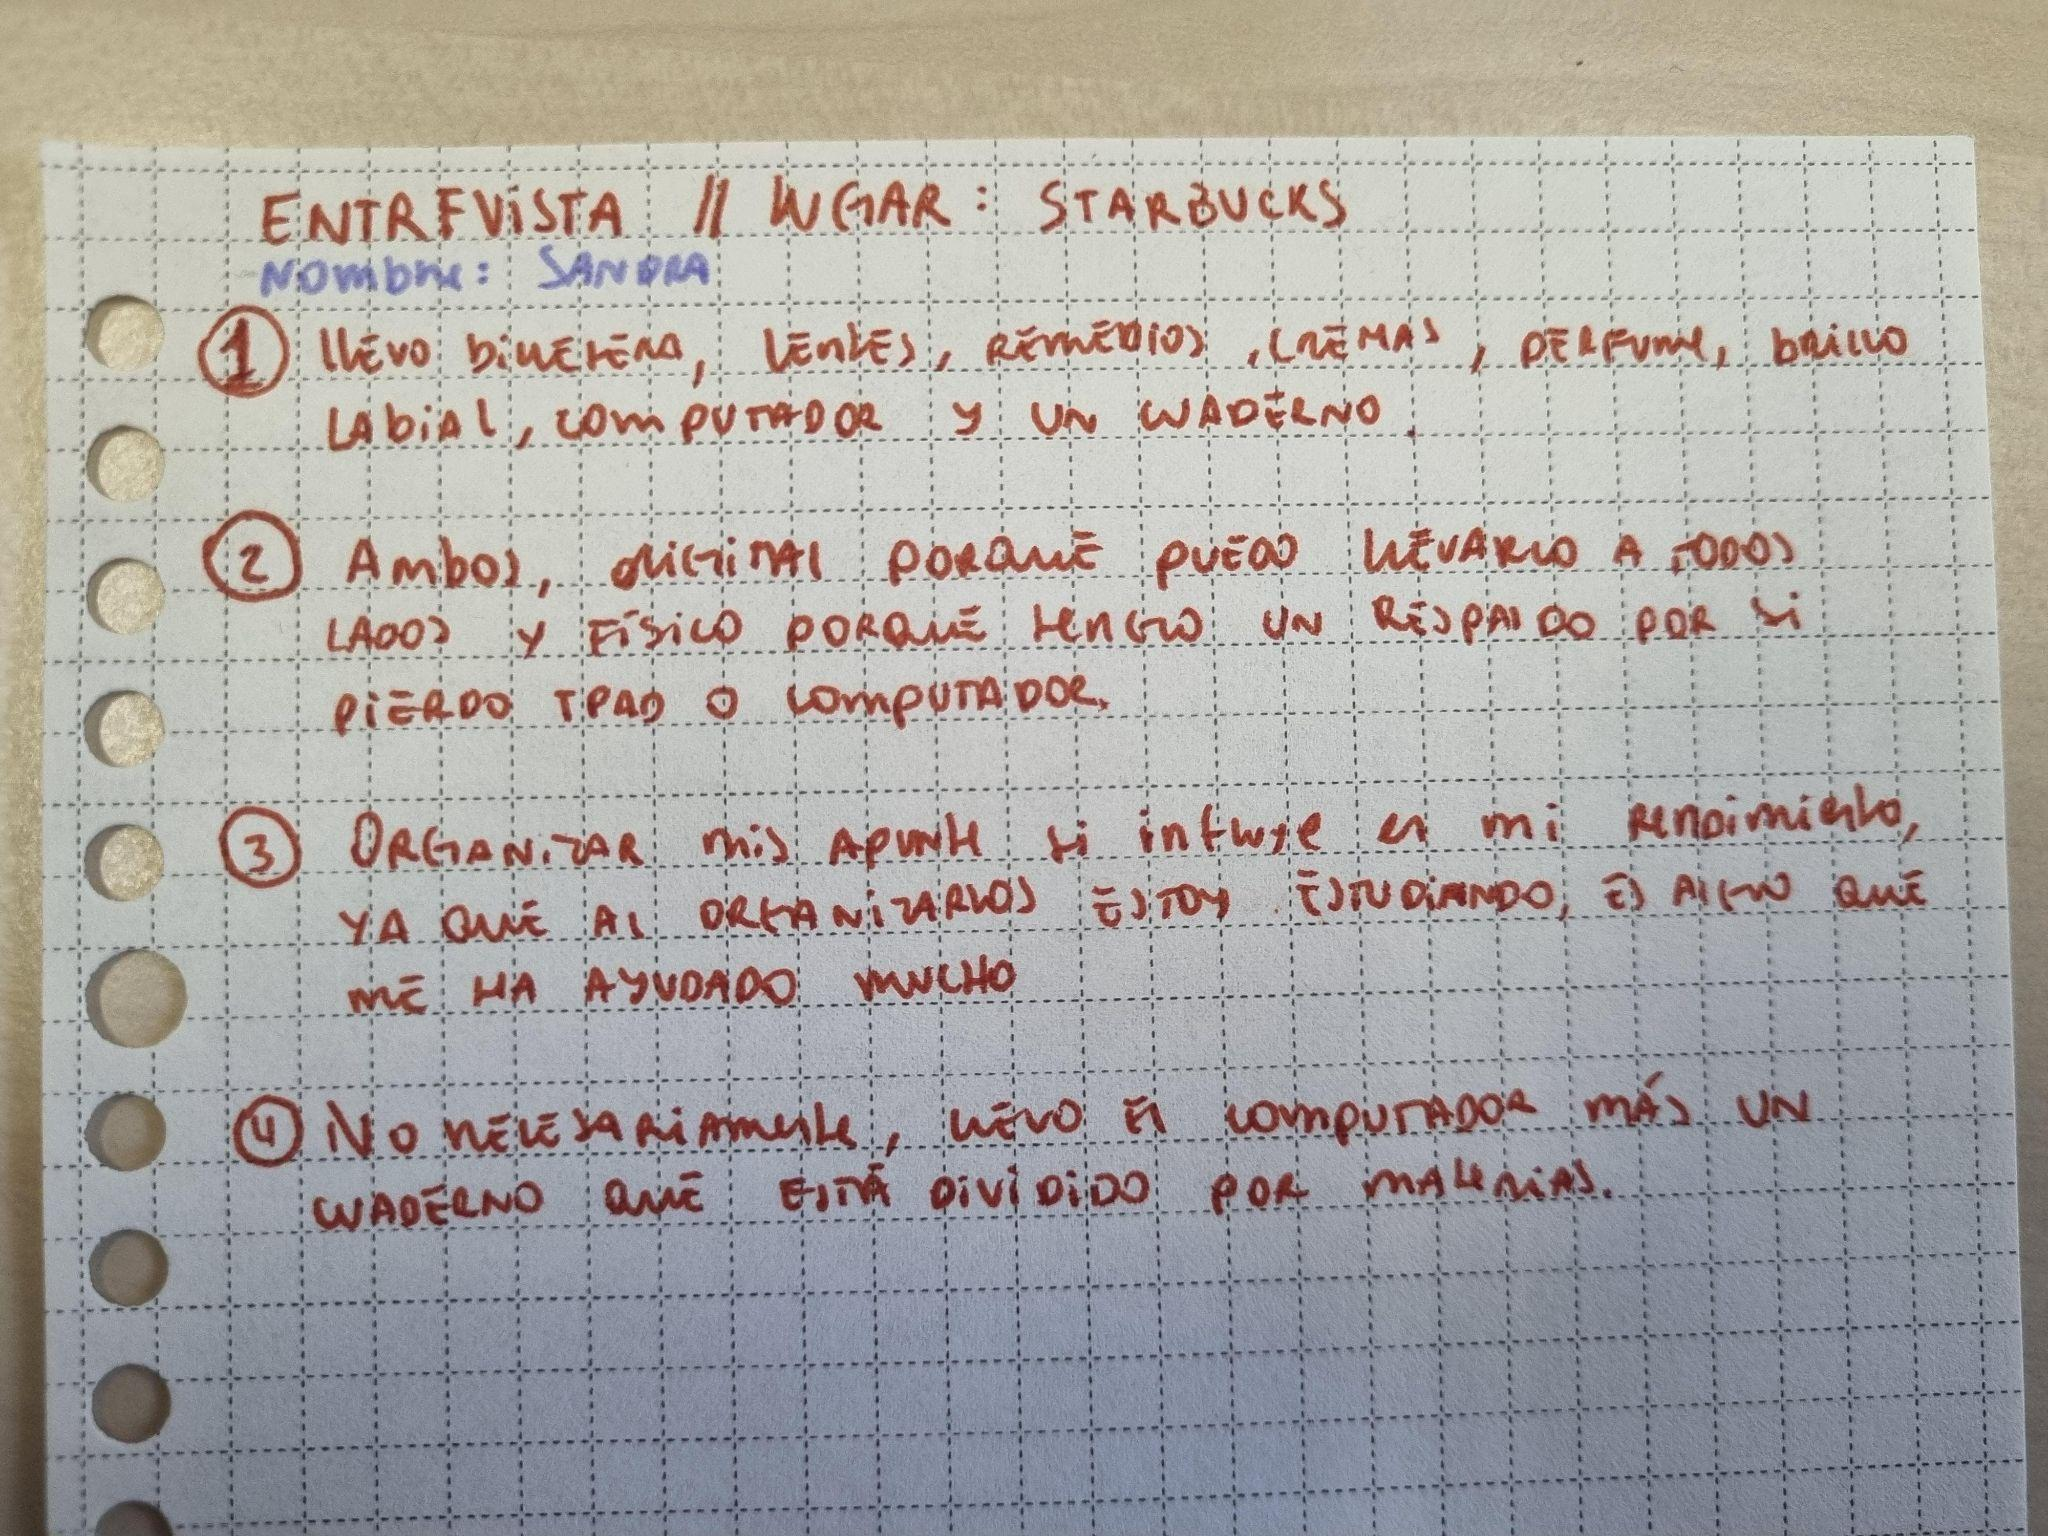 ENTREVISTA // LUGAR: STARBUCKS
Nombre: SANDRA
1 llevo billetera, lentes, remedios, cremas, perfume, brillo
labial, computador y un cuaderno.
2 Ambos, digital porque puedo llevarlo a todos
lados y físico porque tengo un respaldo por si
pierdo IPAD o computador.
3 Organizar mis apunte si influye en mi rendimiento,
ya que al organizarlos estoy estudiando, es algo que
me ha ayudado mucho
4 No necesariamente, llevo el computador más un
cuaderno que está dividido por materias.